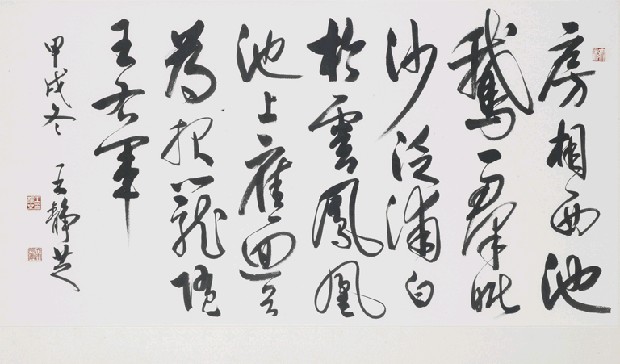 房相西池
鵝一羣眠
沙泛浦白
於雲鳳凰
池上應迴首
為報籠隨
王右軍
甲戌冬 王靜芝